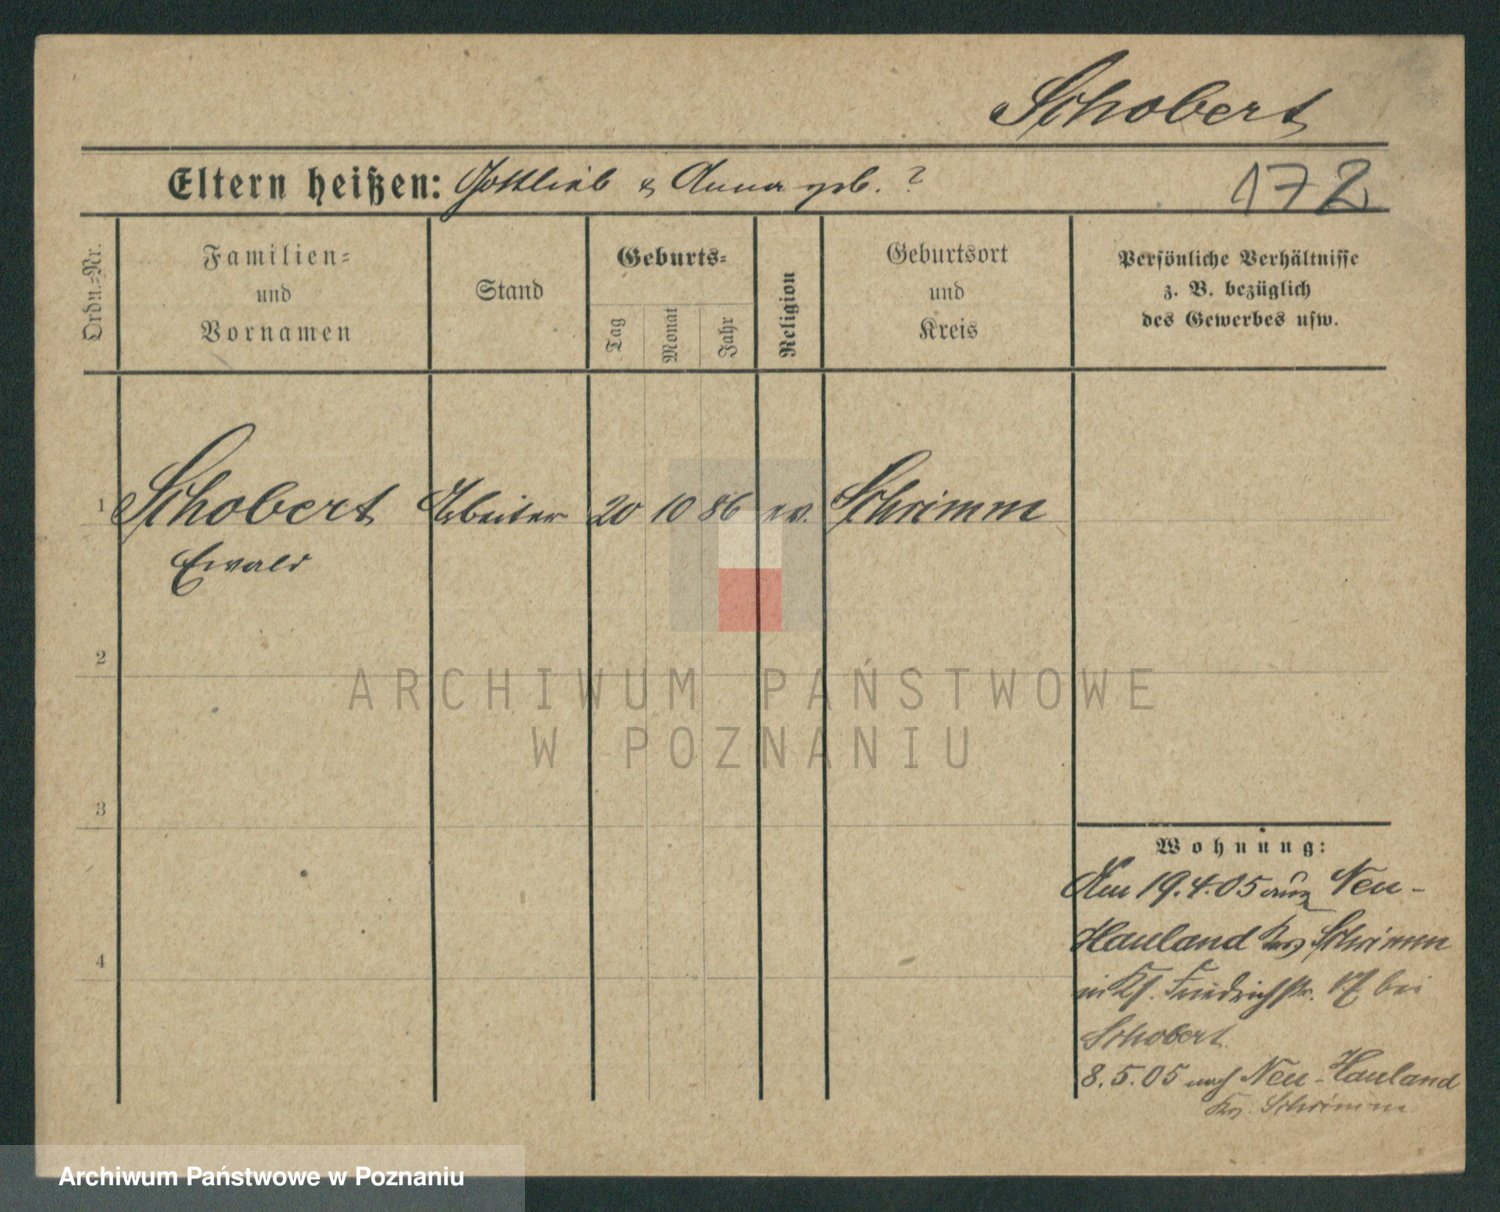 Schobert
Eltern heißen: Gottlieb & Anna geb. ?
172
Ordn.-Nr.
Familien-
und
Vornamen
Stand
Geburts-
Tag
Monat
Jahr
Religion
Geburtsort
und
Kreis
Persönliche Verhältnisse
z. B. bezüglich
des Gewerbes usw.
1 Schobert Arbeiter 20 10 86 ev. Schrimm
Ewald
2
ARCHIWUM PAŃSTWOWE
W POZNANIU
3
Wohnung:
Am 19.4.05 aus Neu-
Hauland Krs Schrimm
in Friedrichstr. bei
4
Schobert
8.5.05 nach Neu-Hauland
Krs. Schrimm
Archiwum Państwowe w Poznaniu